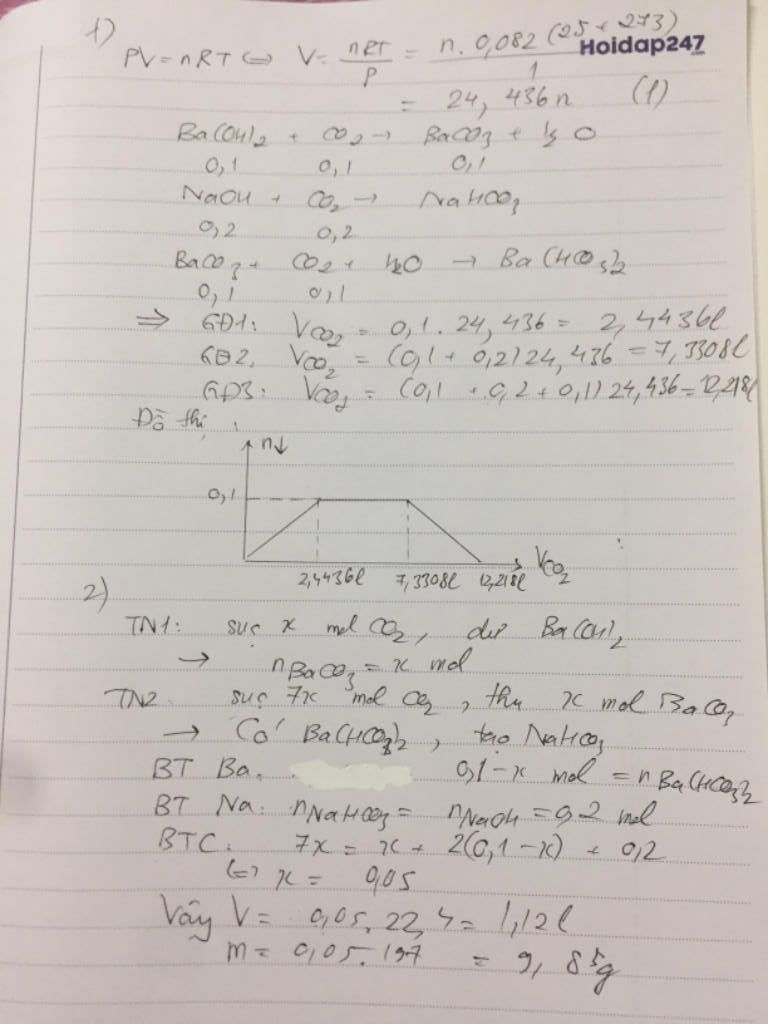 1)
Hoidap247
PV = nRT <=> V = nRT/P = n. 0,082 (25 + 273)/1
= 24, 436n (1)
Ba(OH)2 + CO2 → BaCO3 + H2O
0,1 0,1 0,1
NaOH + CO2 → NaHCO3
0,2 0,2
BaCO3 + CO2 + H2O → Ba(HCO3)2
0,1 0,1
=> GĐ1: VCO2 = 0,1. 24,436 = 2,4436l
GĐ2. VCO2 = (0,1 + 0,2)24,436 = 7,3308l
GĐ3: VCO2 = (0,1 + 0,2 + 0,1) 24,436 = 12,218l
Đồ thị:
n↓
0,1
2,4436l 7,3308l 12,218l VCO2
2)
TN1: sục x mol CO2, dư Ba(OH)2
→ nBaCO3 = x mol
TN2. sục 7x mol CO2, thu x mol BaCO3
→ Có Ba(HCO3)2, tạo NaHCO3
BT Ba. 0,1-x mol = nBa(HCO3)2
BT Na: nNaHCO3 = nNaOH = 0,2 mol
BTC: 7x = x + 2(0,1-x) + 0,2
<=> x = 0,05
Vậy V = 0,05. 22,4 = 1,12l
m = 0,05. 197 = 9, 85g